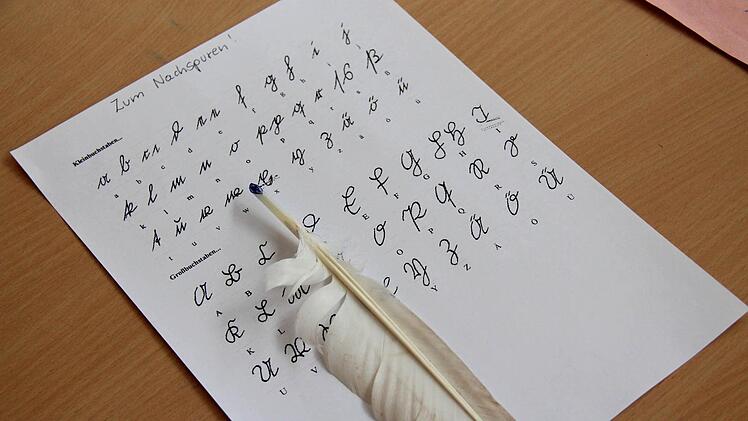 Zum Nachspuren!
Kleinbuchstaben...
a b c d e f g h i j
k l m n o p q r s ß
t u v w x y z ä ö ü
Großbuchstaben...
A B E F G H I
K L O P Q R S
U V Y Z Ä Ö Ü